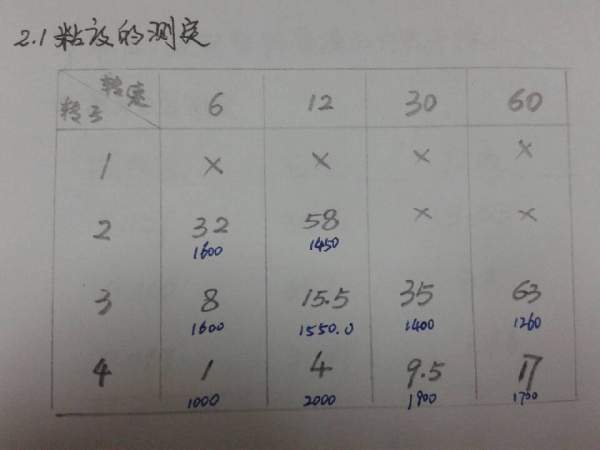 2.1 粘度的测定
转速
转子 6 12 30 60
1 × × × ×
2 32 58 × ×
1600 1450
3 8 15.5 35 63
1600 1550.0 1400 1260
4 1 4 9.5 17
1000 2000 1900 1700